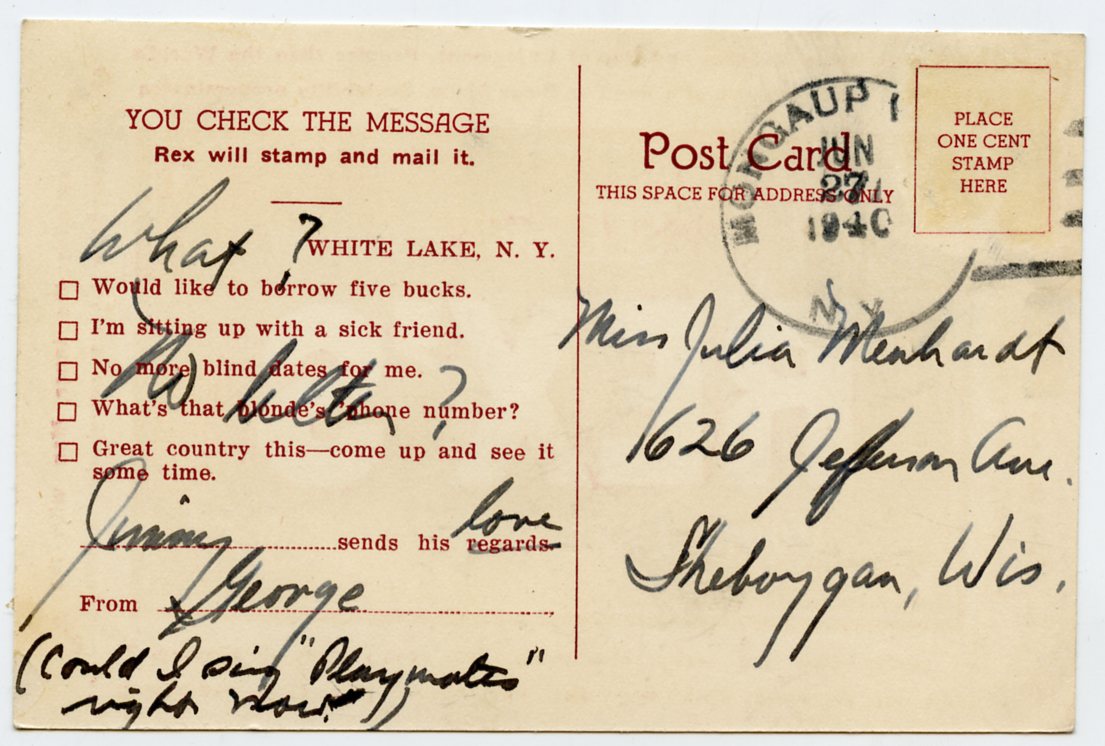 YOU CHECK THE MESSAGE
Rex will stamp and mail it.
What?
WHITE LAKE, N. Y.
Would like to borrow five bucks.
I'm sitting up with a sick friend.
No more blind dates for me.
What's that blonde's 'phone number?
Great country this—come up and see it
some time.
No letter?
Jimmy sends his regards. love
From George
(Could I sing "Playmates"
right now!)
Post Card
THIS SPACE FOR ADDRESS ONLY
PLACE
ONE CENT
STAMP
HERE
MONGAUP
JUN
27
1940
N.Y.
Miss Julia Menhardt
626 Jefferson Ave.
Sheboygan, Wis.